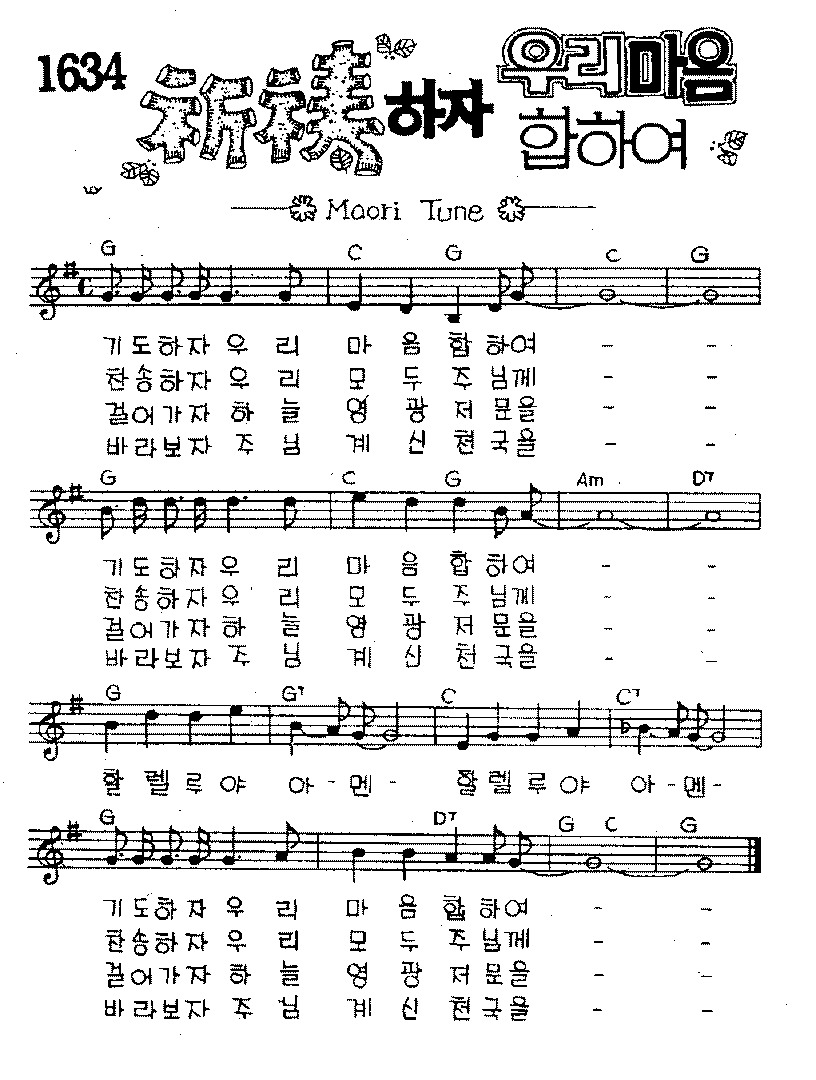 1634 祈禱하자 우리마음
합하여
Maori Tune
G C G C G
기도하자 우리 마음 합하여 - -
찬송하자 우리 모두 주님께 - -
걸어가자 하늘 영광 저문을 - -
바라보자 주님 계신 천국을 - -
G C G Am D7
기도하자 우리 마음 합하여 - -
찬송하자 우리 모두 주님께 - -
걸어가자 하늘 영광 저문을 - -
바라보자 주님 계신 천국을 - -
G G7 C C7
할렐루야 아-멘- 할렐루야 아-멘-
G D7 G C G
기도하자 우리 마음 합하여 - -
찬송하자 우리 모두 주님께 - -
걸어가자 하늘 영광 저문을 - -
바라보자 주님 계신 천국을 - -